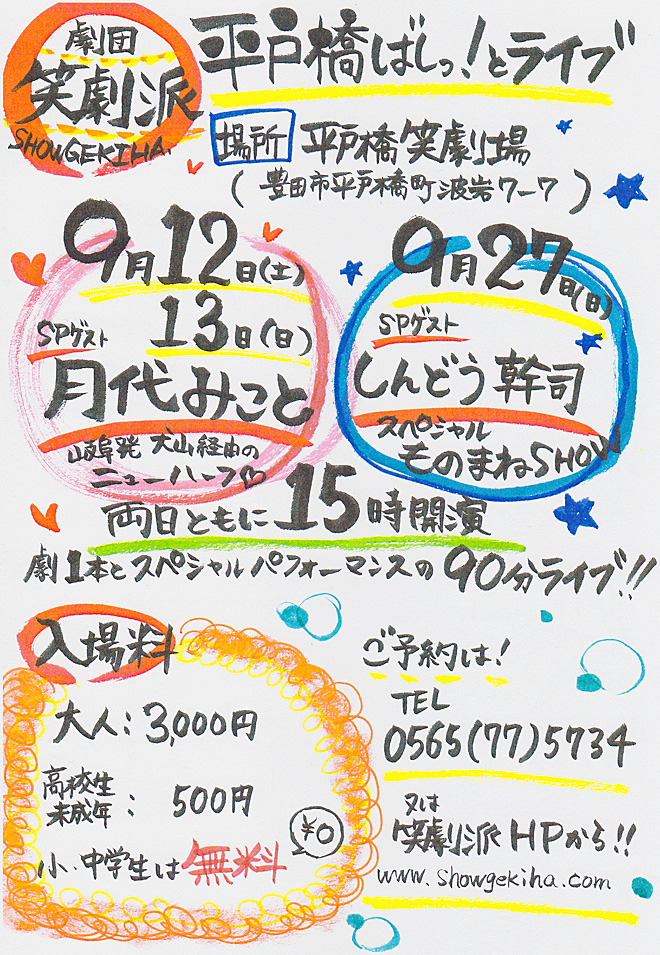 劇団
笑劇派
SHOWGEKIHA.
平戸橋ばしっ!とライブ
場所 平戸橋笑劇場
(豊田市平戸橋町波岩7-7)
9月12日(土)
13日(日)
SPゲスト
月代みこと
岐阜発 犬山経由の
ニューハーフ♡
9月27日(日)
SPゲスト
しんどう幹司
スペシャル
ものまねSHOW
両日ともに15時開演
劇1本とスペシャルパフォーマンスの90分ライブ!!
入場料
大人:3,000円
高校生
未成年:500円
小・中学生は無料
¥0
ご予約は!
TEL
0565(77)5734
又は
笑劇派HPから!!
www.showgekiha.com